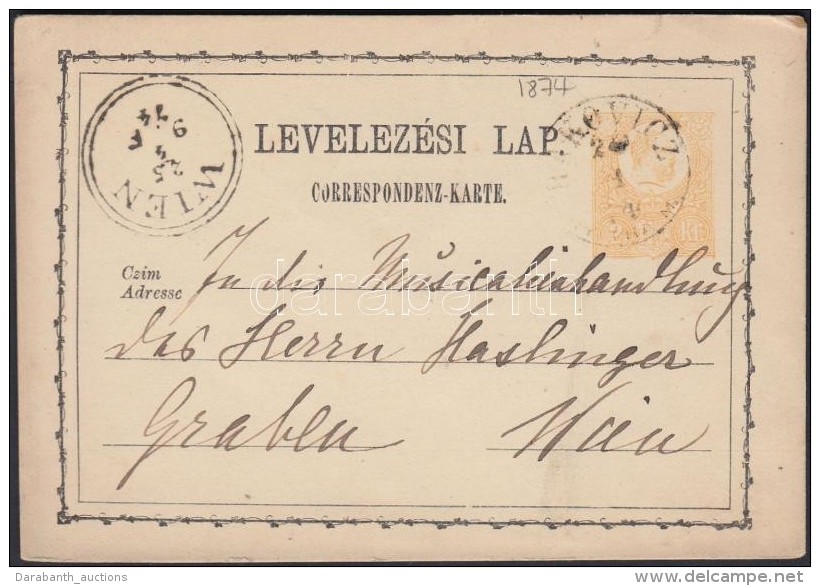 1874
LEVELEZÉSI LAP
CORRESPONDENZ-KARTE.
WIEN
25
4
74
Czim
Adresse
In die Musicalienhandlung
des Herrn Haslinger
Graben Wien
darabanth
Darabanth_auctions
delcampe.net